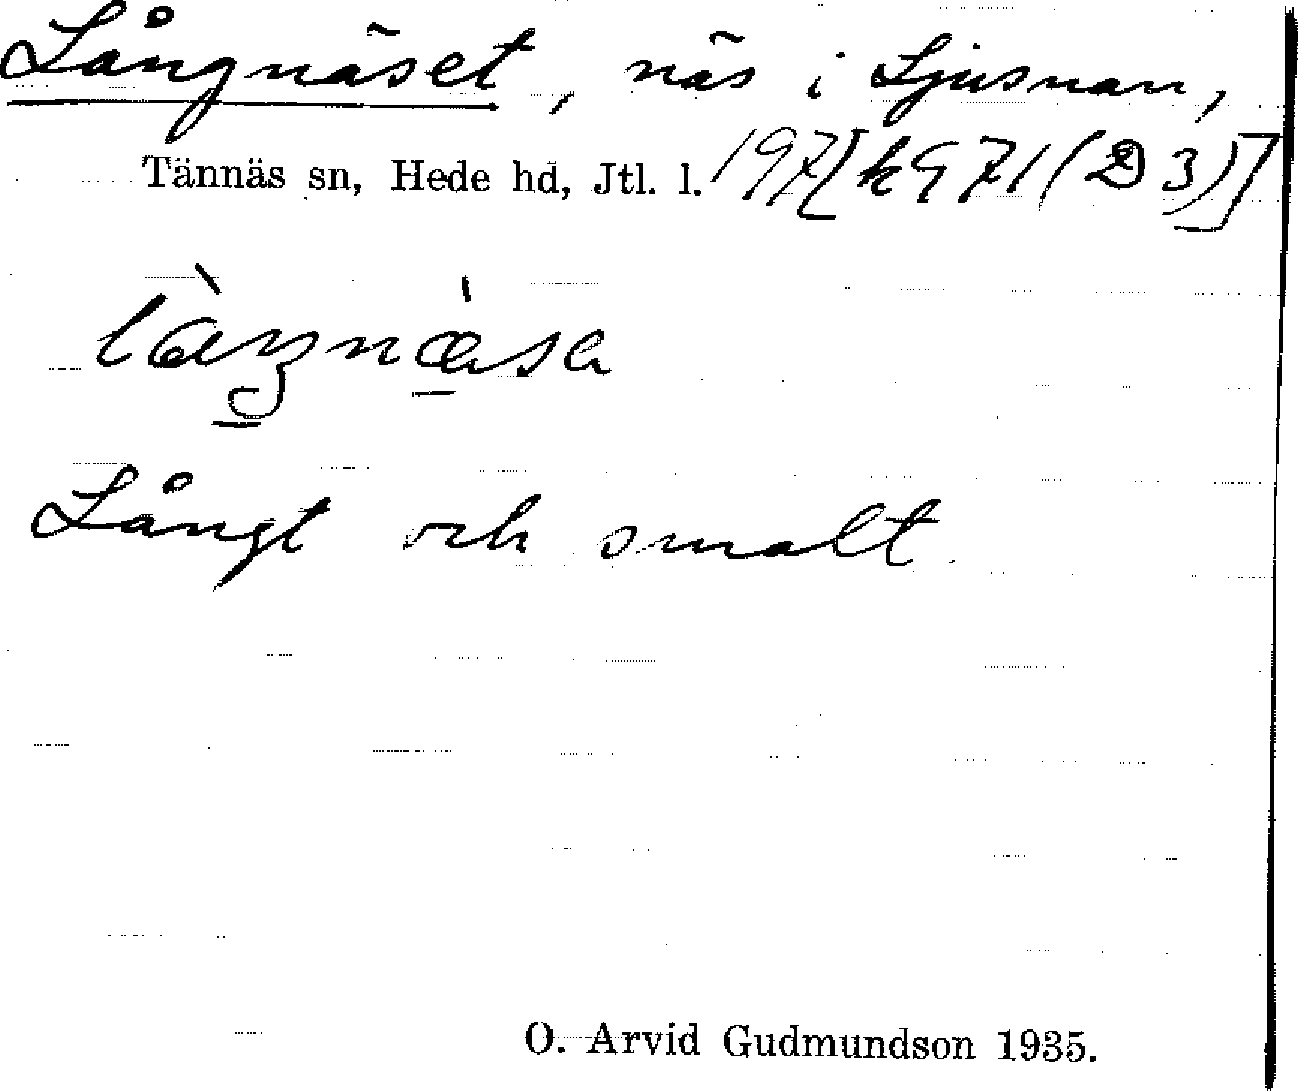 Långnäset, näs i Ljusnan,
Tännäs sn, Hede hd, Jtl. l. 197 [k 971 (D 3)]
Långt och smalt.
O. Arvid Gudmundson 1935.